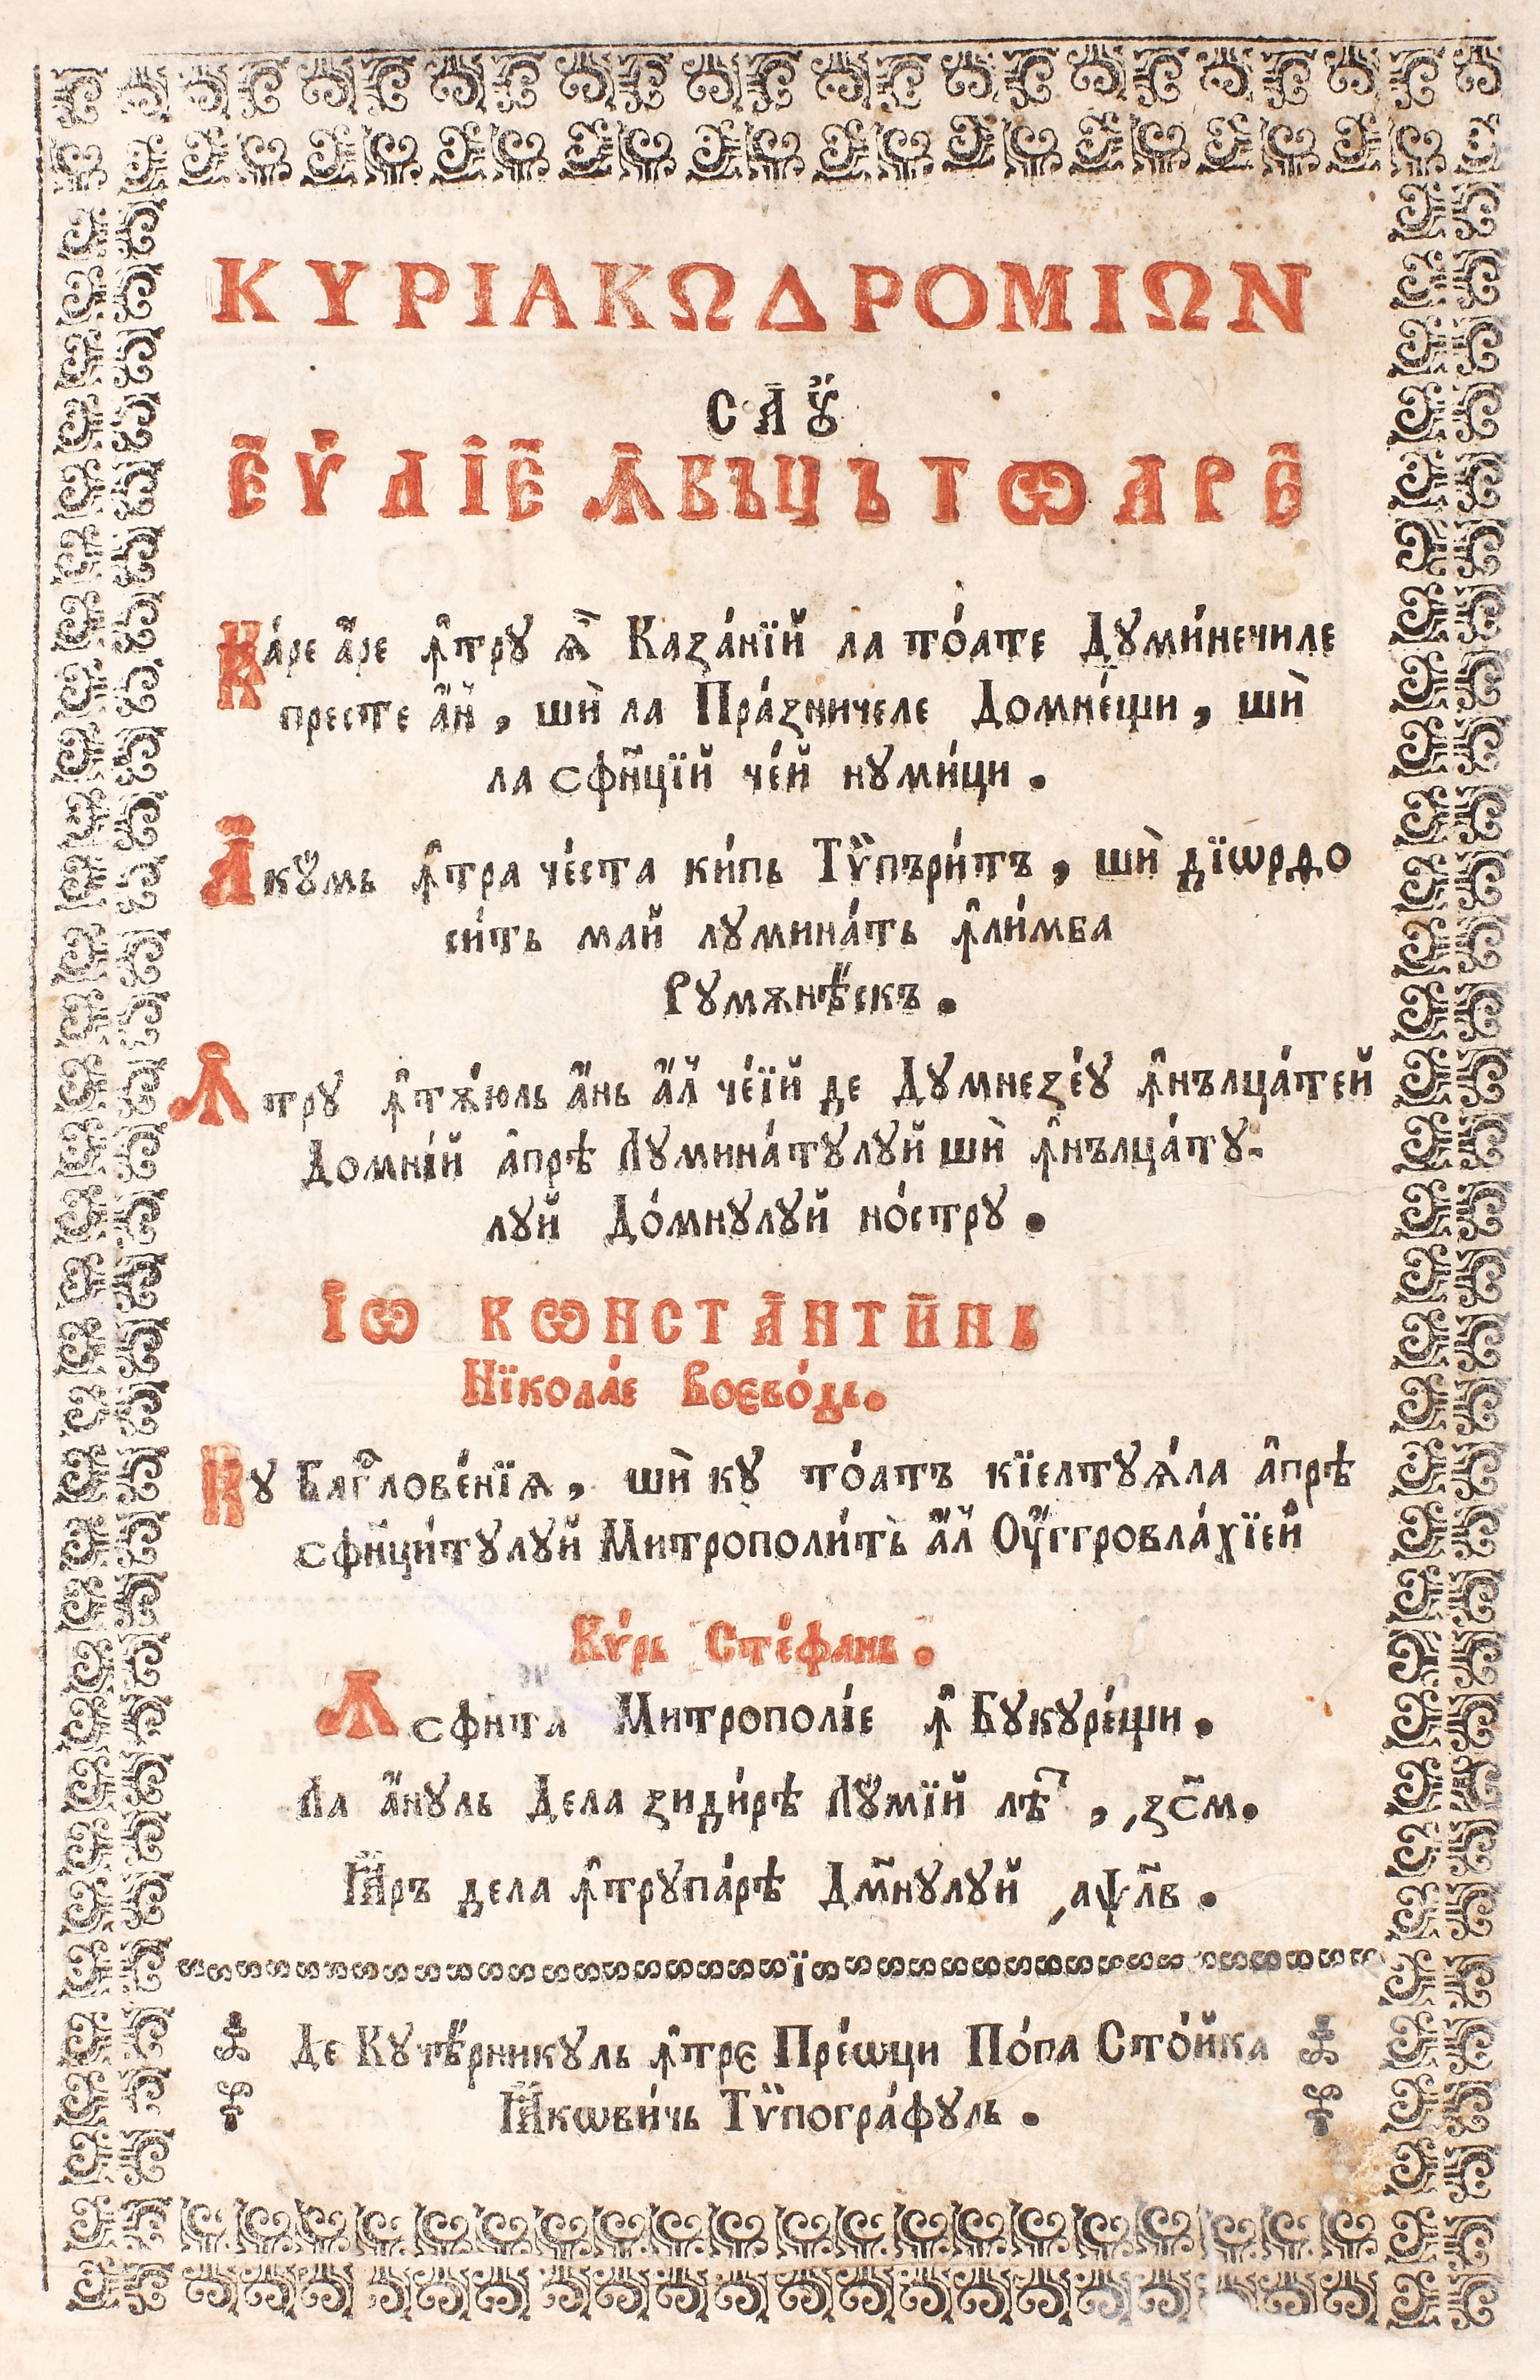 ΚΥΡΙΑΚΩΔΡΟΜΙΩΝ
САꙊ
ЕѴЛІЕ ѪВЪЦЪТѠАРЕ
Ка́ре а҆́ре ꙟ҆тру ѧ҆̀ Каза́нїй ла то́ате Думи́нечиле
песте а҆́н, шѝ ла Пра́зничеле Домне́щи, шѝ
ла сфн҃цїй че́й нуми́ци.
А҆кꙋмь ꙟ҆тра че́ста ки́пь Тѷпъри́тъ, шѝ дїѡрдо
си́ть май лумина́ть ꙟ҆ли́мба
Румѫнѣ́скъ.
Ѫтру ꙟ҆тѫ́юль а҆́нь а҆́л че́їй де Думнезе́у ꙟ҆нълца́тей
Домні́й а҆прѣ Лумина́тулуй шѝ ꙟ҆нълца́ту-
луй До́мнулуй но́стру.
І҆Ѡ КѠНСТАНТИНЬ
Нїкола́е Воєво́дь.
Ку Багⷭ҇лове́нїѧ, шѝ ку то́атъ кїелтуѧ́ла а҆прѣ
сфн҃ци́тулуй Митрополи́ть а҆́л Оу҆ггровла́хїей
Кѵ́рь Сте́фань.
Ѫ сфн҃та Митрополі́е ꙟ҆ Букуре́щи.
Ла а҆́нуль Дела зиди́рѣ Лꙋ́мїй лѣ҃т, ҂зс҃м.
Ꙗ҆́ръ дела ꙟ҆трупа́рѣ Дм҃нулуй ҂аѱл҃в.
Де Кучѣ́рникуль ꙟ҆трє Пре́ѡци По́па Сто́йка
Ꙗ҆кѡви́чь Тѷпогра́фуль.